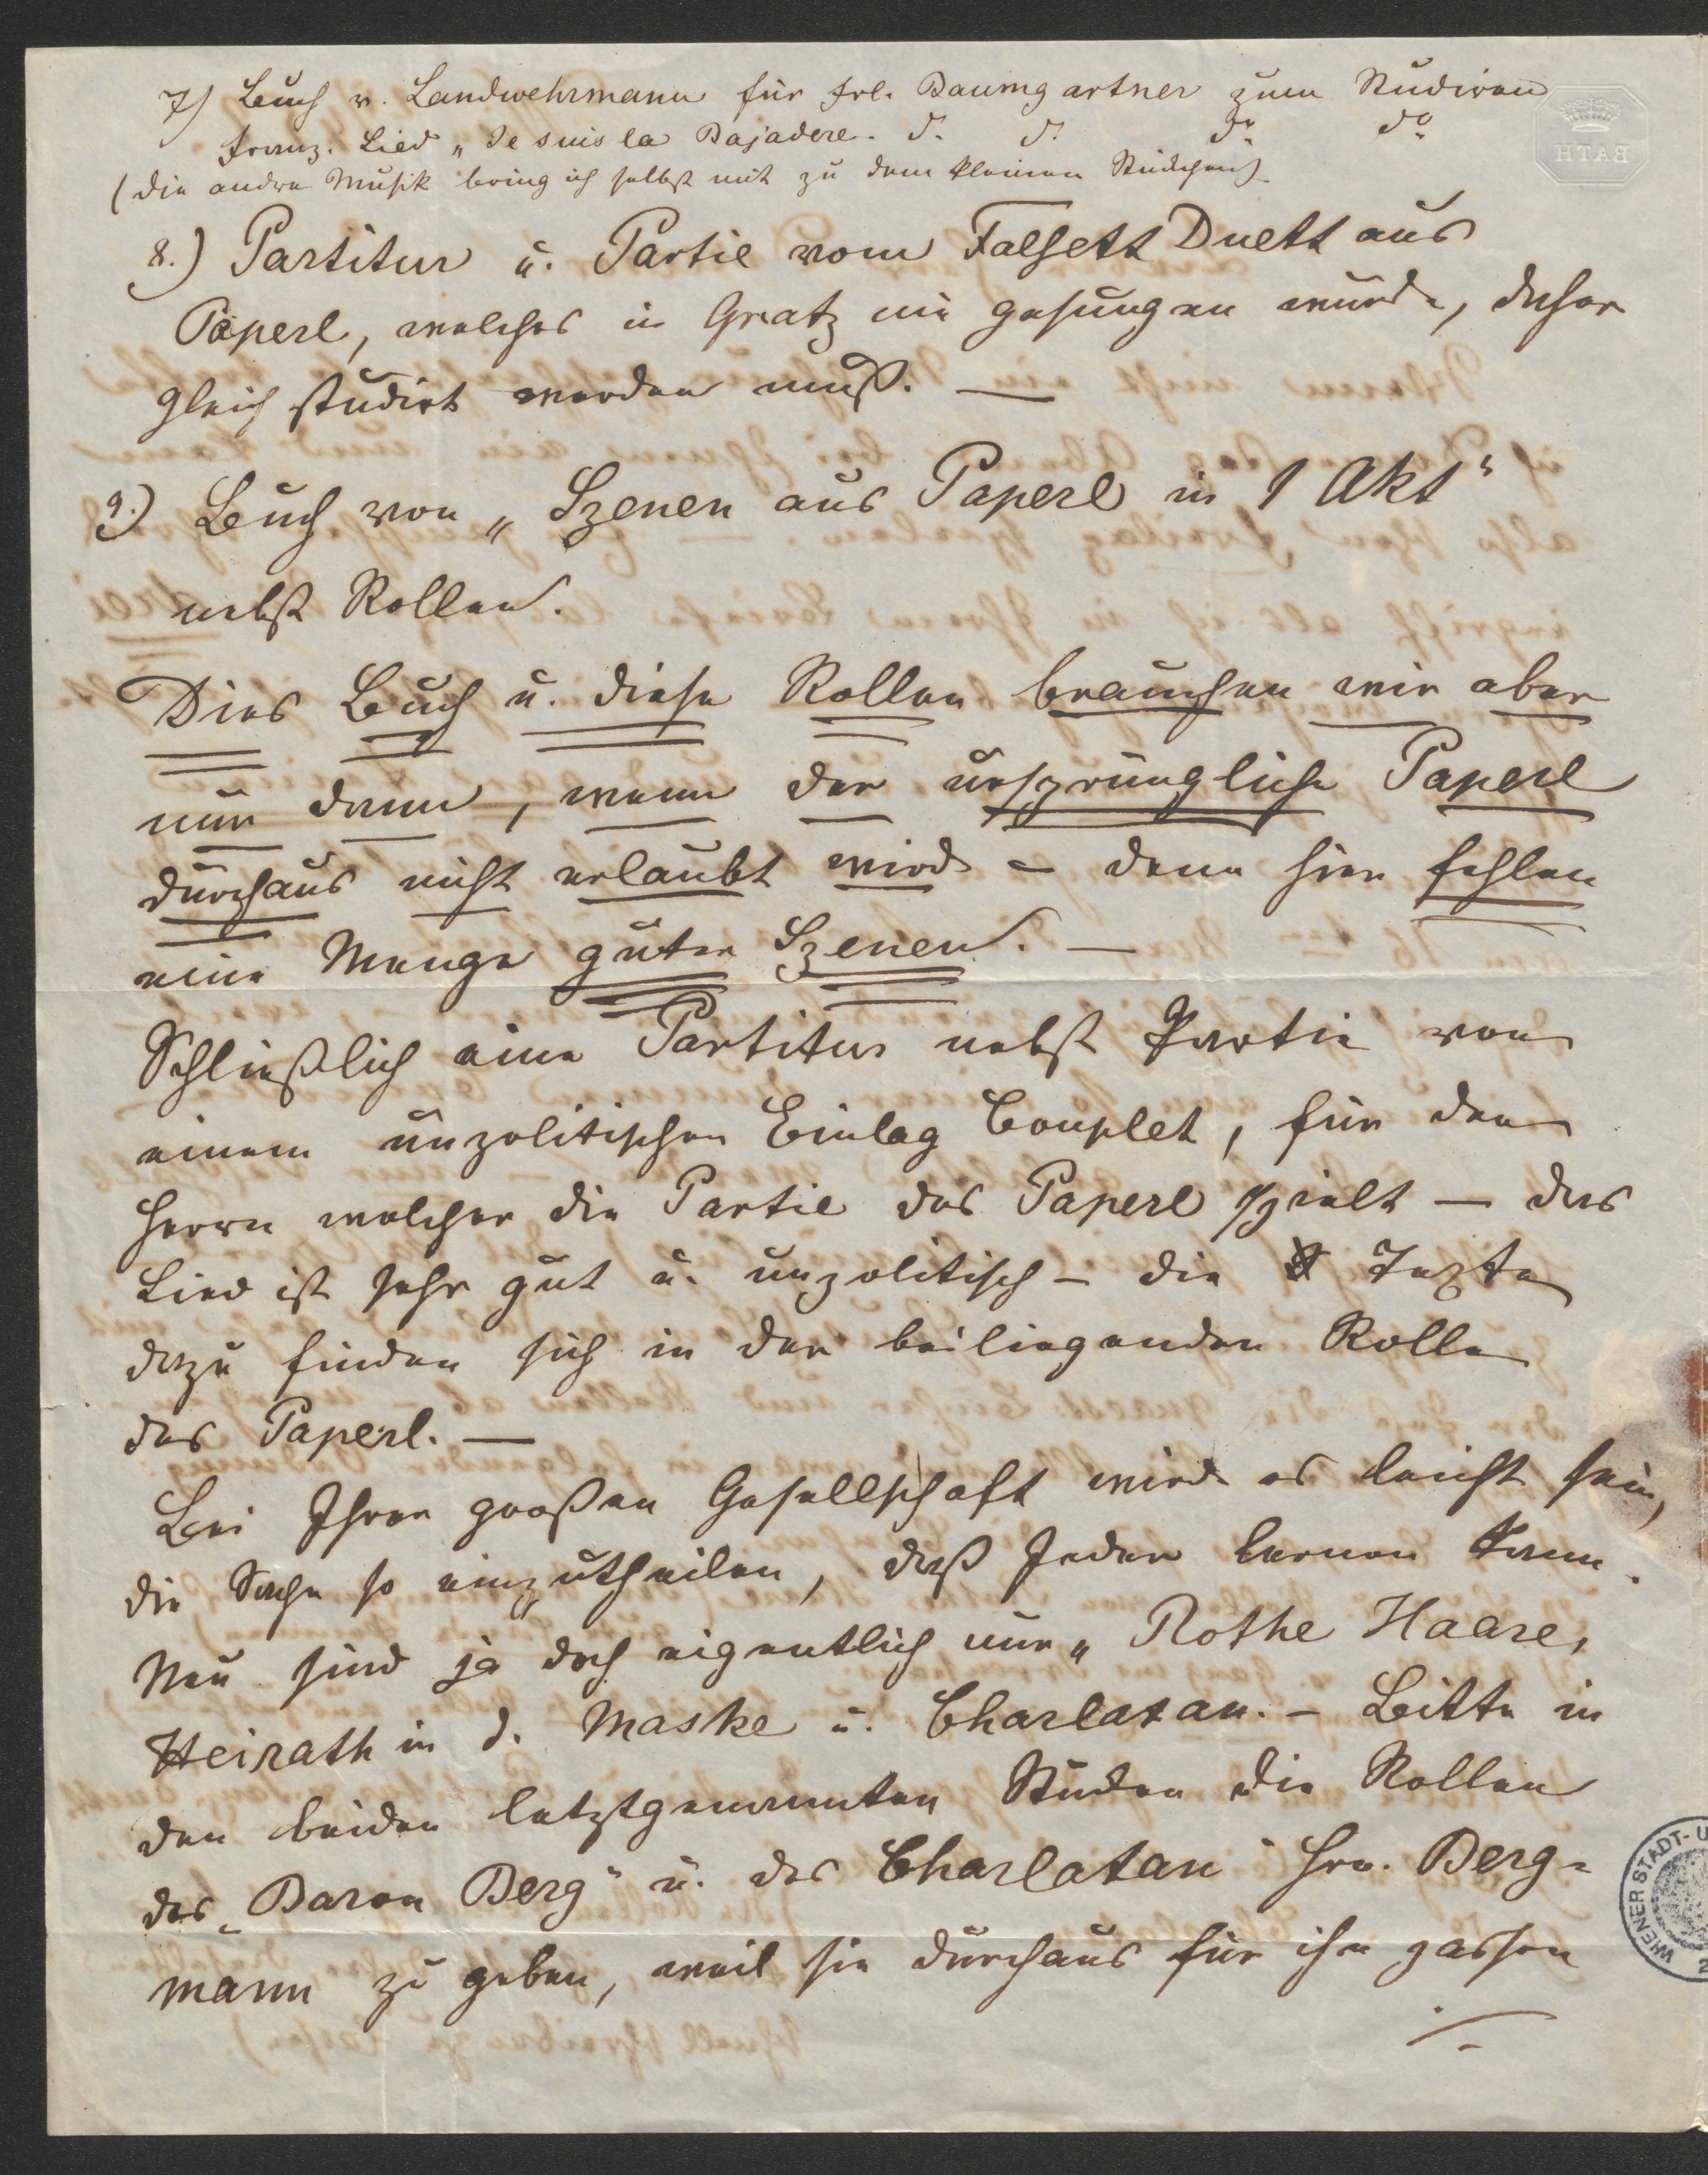 7) Buch v. Landwehrmann für Frl. Baumgartner zum Studiren
Franz. Lied „Je suis la Bajadere. do. do. do. do.
(die andre Musik bring ich selbst mit zu dem kleinen Stückchen)
BATH
8.) Partitur u. Partie vom Falsett Duett aus
Paperl, welches in Gratz nie gesungen wurde, daher
gleich studirt werden muß. —
9.) Buch von „Szenen aus Paperl in 1 Akt“
nebst Rollen.
Dies Buch u. diese Rollen brauchen wir aber
nur dann, wenn der ursprüngliche Paperl
durchaus nicht erlaubt wird – denn hier fehlen
eine Menge guter Szenen. —
Schließlich eine Partitur nebst Partie von
einem unpolitischen Einlag Couplet, für den
Herrn welcher die Partie des Paperl spielt — das
Lied ist sehr gut u. unpolitisch – die Texte
dazu finden sich in der beiliegenden Rolle
des Paperl. —
Bei Ihrer großen Gesellschaft wird es leicht sein,
die Sache so einzutheilen, daß Jeder lernen kann.
Neu sind ja doch eigentlich nur „Rothe Haare,
Heirath in d. Maske u. Charlatan. – Bitte in
den beiden letztgenannten Stücken die Rollen
des „Baron Berg“ u. des Charlatan Hrn. Berg=
mann zu geben, weil sie durchaus für ihn passen
./.
WIENER STADT- U
2